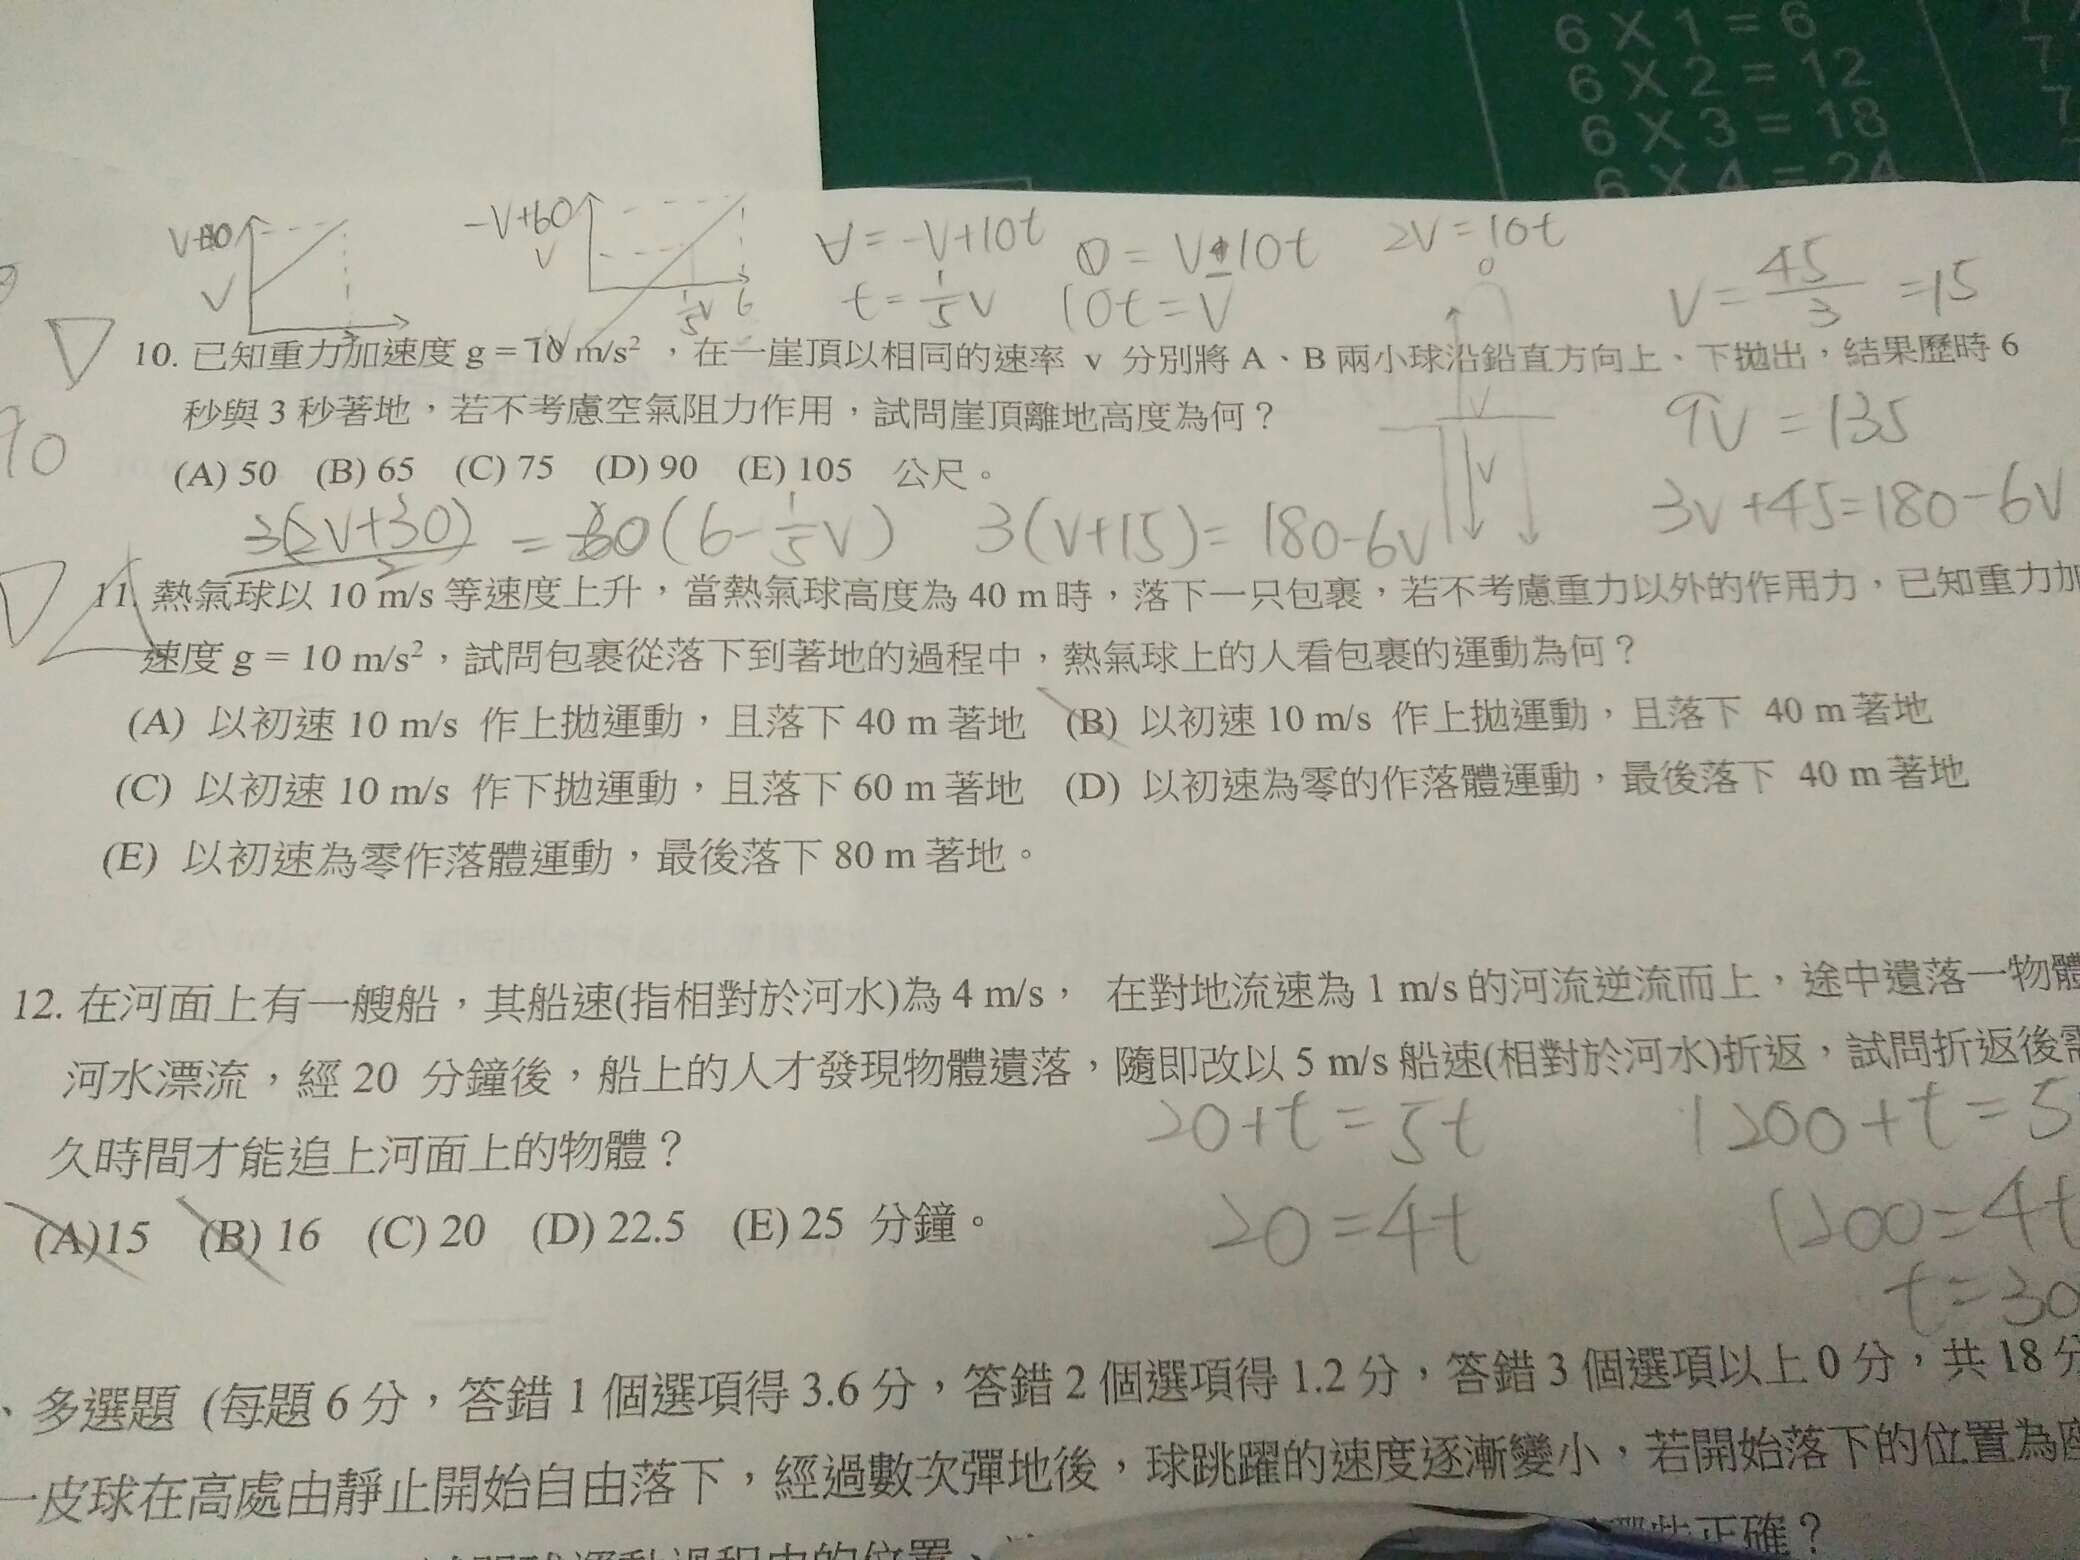 6 X 1 = 6
6 X 2 = 12
6 X 3 = 18
6 X 4 = 24
7
7
V
-V+60
V
1/5V 6
V = -V+10t
t = 1/5V
10t = V
2V = 10t
V = 45/3 = 15
10. 已知重力加速度 g = 10 m/s²，在一崖頂以相同的速率 v 分別將 A、B 兩小球沿鉛直方向上、下拋出，結果歷時 6
秒與 3 秒著地，若不考慮空氣阻力作用，試問崖頂離地高度為何？
9V = 135
(A) 50 (B) 65 (C) 75 (D) 90 (E) 105 公尺。
V
V
3(2V+30)/2 = 30(6-1/5V) 3(V+15) = 180-6V
3V+45=180-6V
11. 熱氣球以 10 m/s 等速度上升，當熱氣球高度為 40 m 時，落下一只包裹，若不考慮重力以外的作用力，已知重力加
速度 g = 10 m/s²，試問包裹從落下到著地的過程中，熱氣球上的人看包裹的運動為何？
(A) 以初速 10 m/s 作上拋運動，且落下 40 m 著地 (B) 以初速 10 m/s 作上拋運動，且落下 40 m 著地
(C) 以初速 10 m/s 作下拋運動，且落下 60 m 著地 (D) 以初速為零的作落體運動，最後落下 40 m 著地
(E) 以初速為零作落體運動，最後落下 80 m 著地。
12. 在河面上有一艘船，其船速(指相對於河水)為 4 m/s， 在對地流速為 1 m/s 的河流逆流而上，途中遺落一物體
河水漂流，經 20 分鐘後，船上的人才發現物體遺落，隨即改以 5 m/s 船速(相對於河水)折返，試問折返後需
20+t = 5t 1200+t = 5
久時間才能追上河面上的物體？
20 = 4t 1200 = 4t
(A) 15 (B) 16 (C) 20 (D) 22.5 (E) 25 分鐘。
t = 30
、多選題 (每題 6 分，答錯 1 個選項得 3.6 分，答錯 2 個選項得 1.2 分，答錯 3 個選項以上 0 分，共 18 分
一皮球在高處由靜止開始自由落下，經過數次彈地後，球跳躍的速度逐漸變小，若開始落下的位置為
正確？